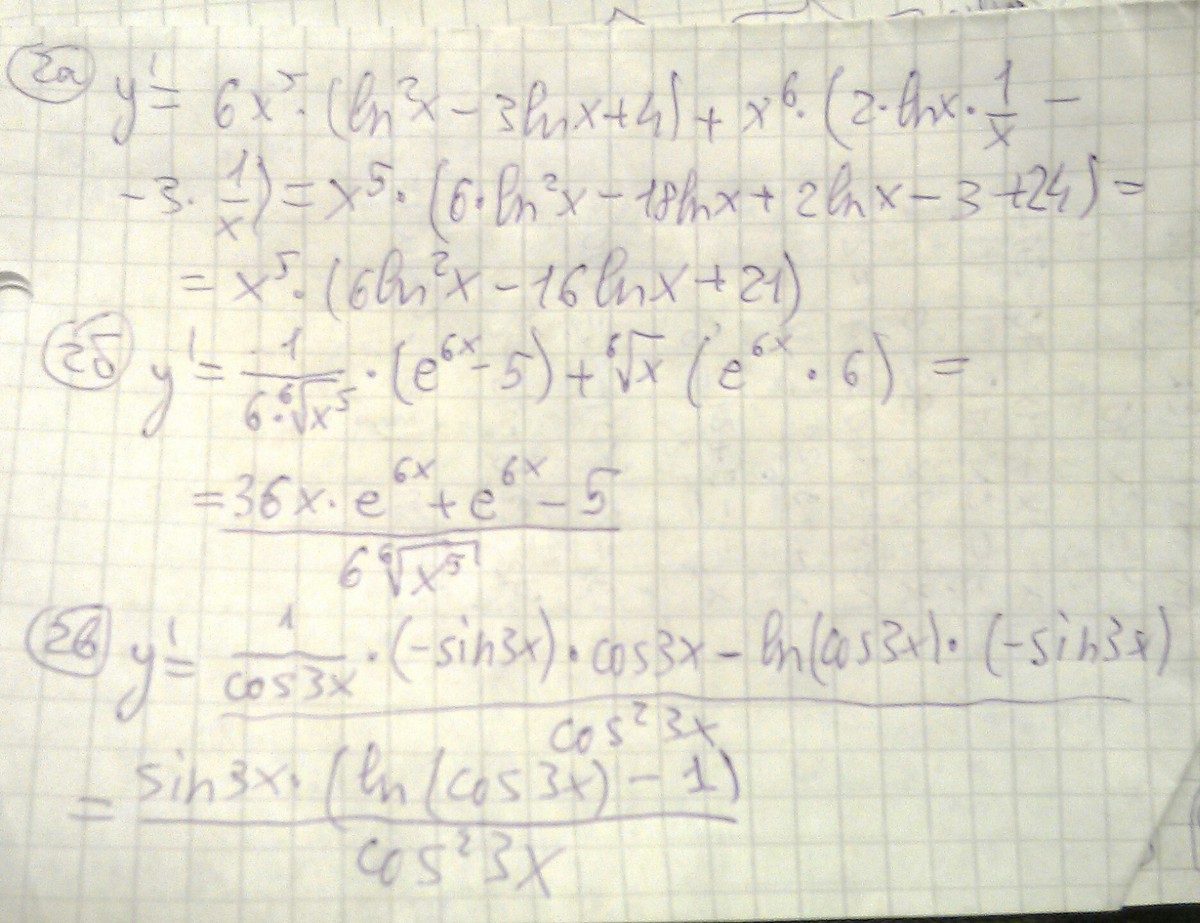 2а y' = 6x⁵·(ln²x - 3lnx + 4) + x⁶·(2·lnx·1/x -
- 3·1/x) = x⁵·(6·ln²x - 18lnx + 2lnx - 3 + 24) =
= x⁵·(6ln²x - 16lnx + 21)
2б y' = 1/(6·⁶√x⁵)·(e⁶ˣ - 5) + ⁶√x (e⁶ˣ·6) =
= (36x·e⁶ˣ + e⁶ˣ - 5)/(6 ⁶√x⁵)
2в y' = (1/cos3x·(-sin3x)·cos3x - ln(cos3x)·(-sin3x))/cos²3x
= sin3x·(ln(cos3x) - 1)/cos²3x